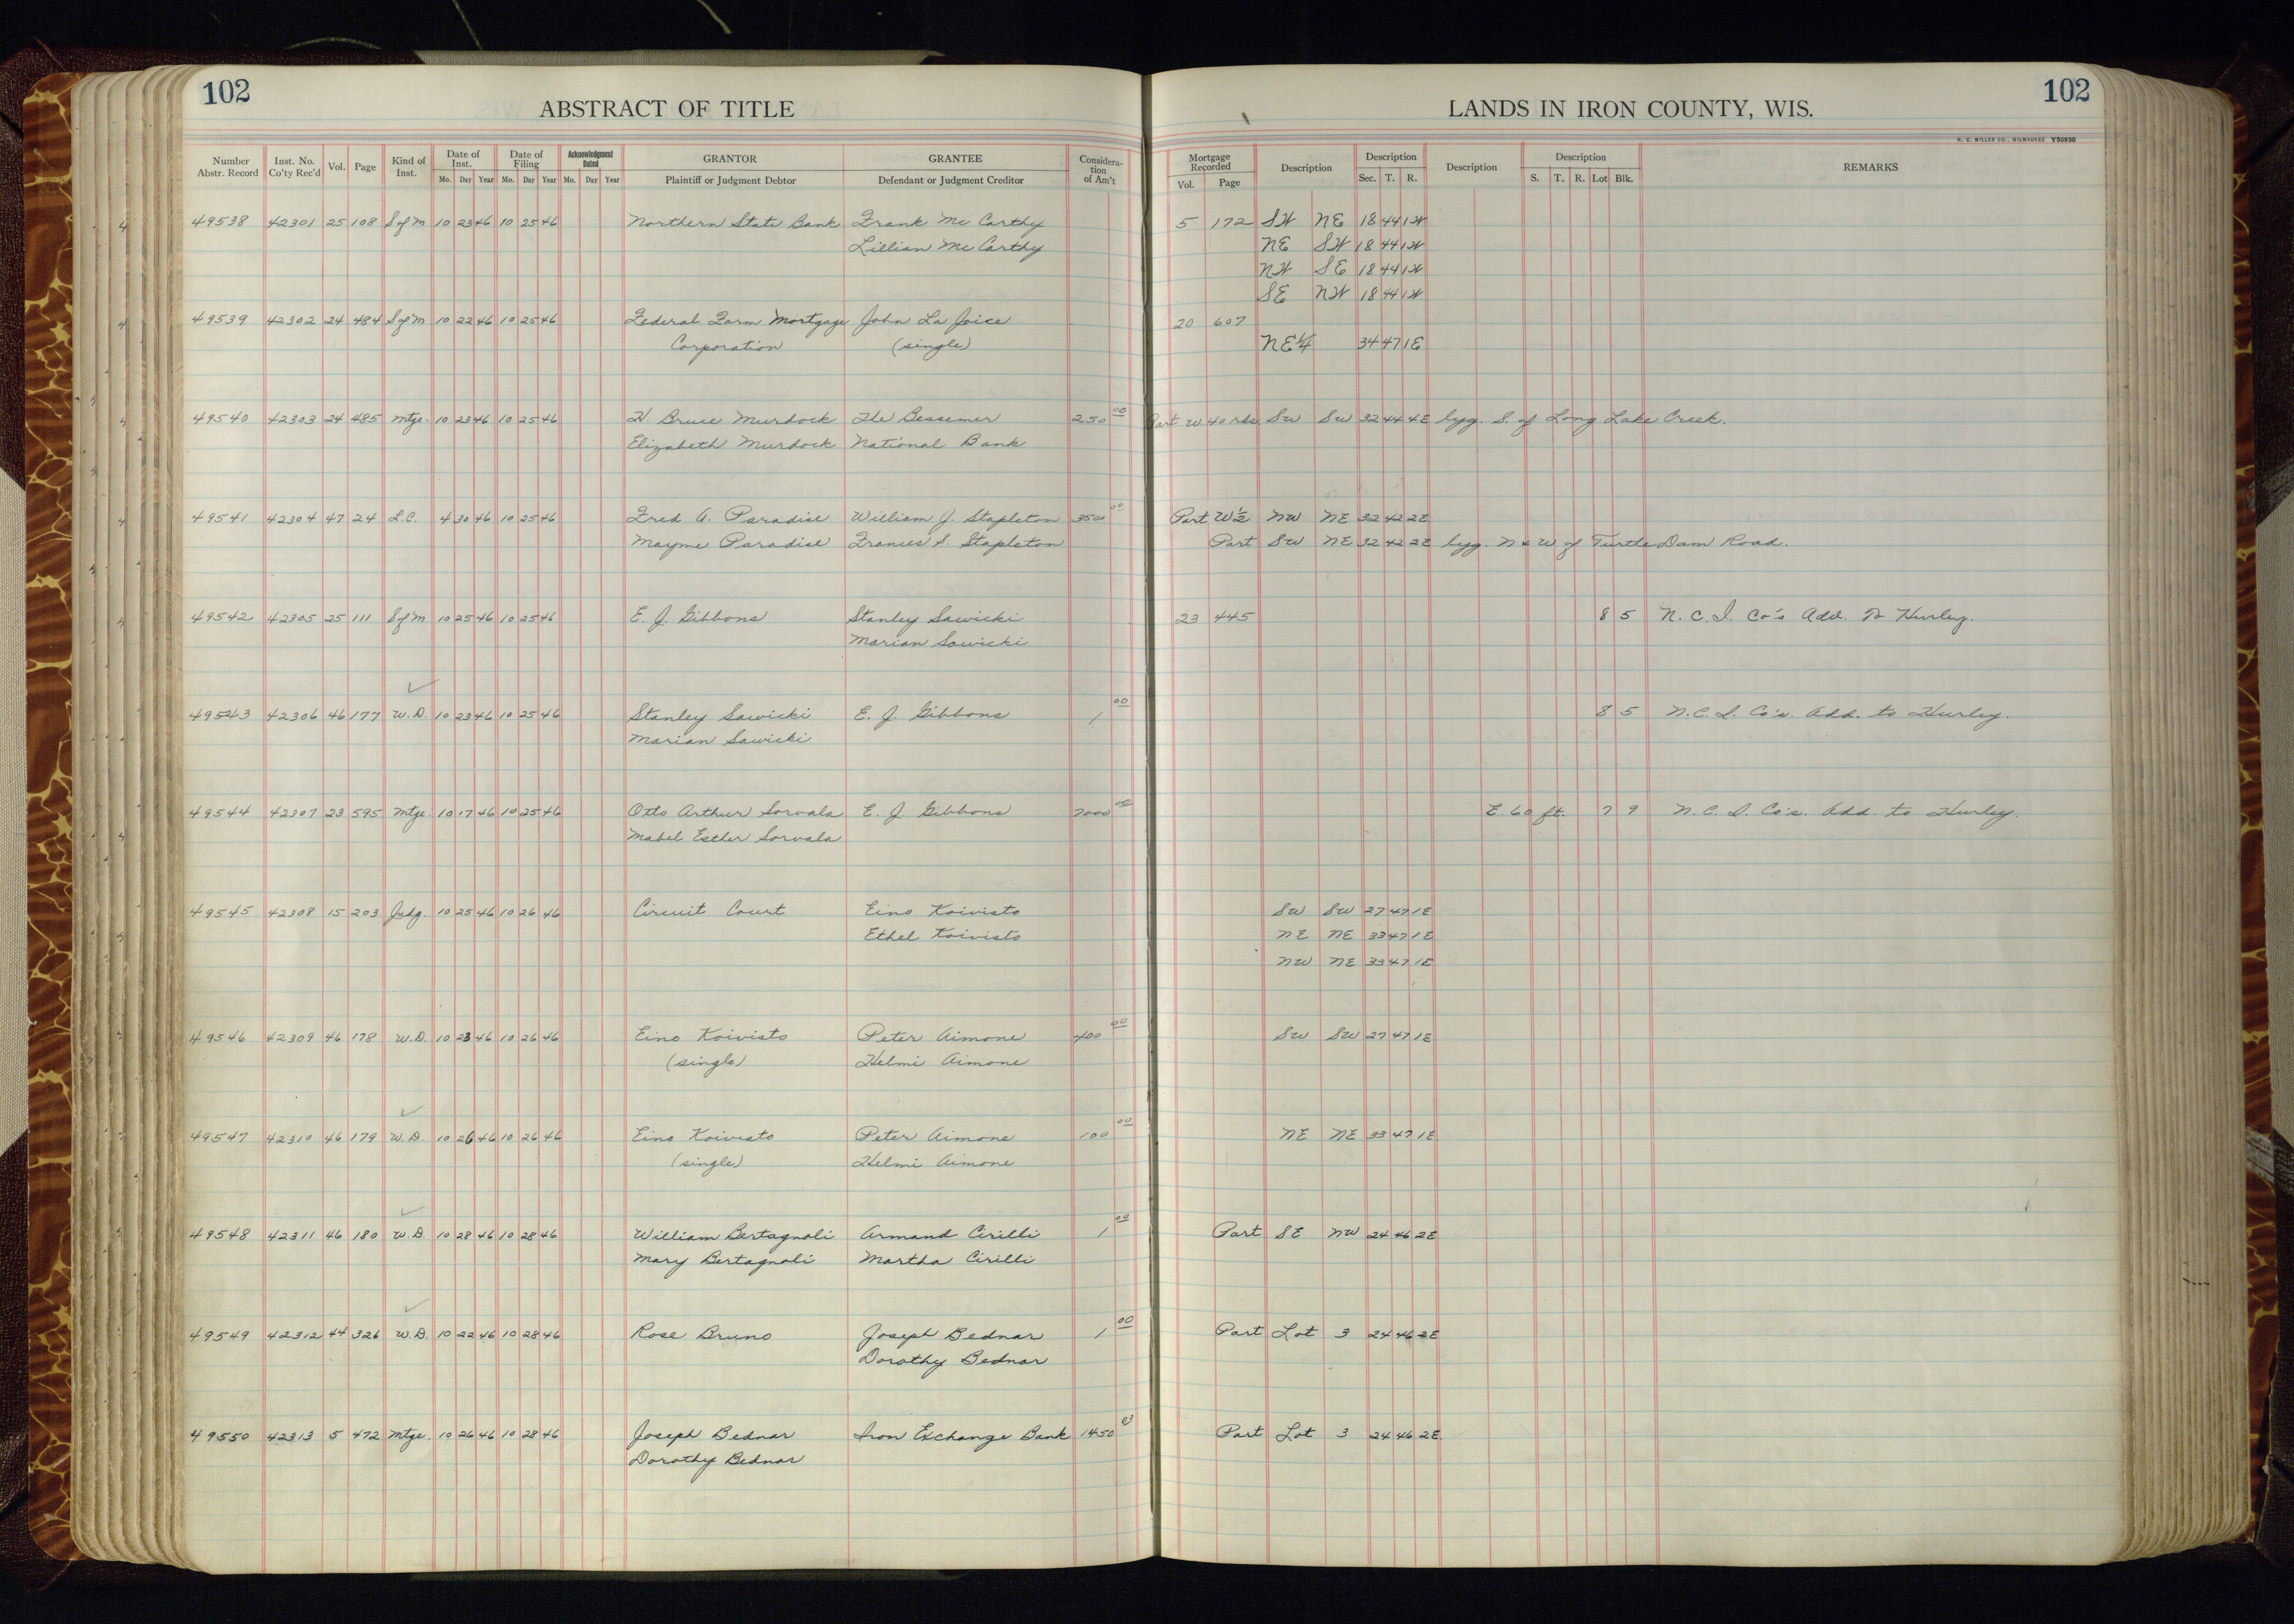 102
ABSTRACT OF TITLE
LANDS IN IRON COUNTY, WIS.
102
H. C. MILLER CO., MILWAUKEE Y50930
Number Abstr. Record Inst. No. Co'ty Rec'd Vol. Page Kind of Inst. Date of Inst. Mo. Day Year Date of Filing Mo. Day Year Acknowledgment Dated Mo. Day Year GRANTOR Plaintiff or Judgment Debtor GRANTEE Defendant or Judgment Creditor Considera-tion of Am't Mortgage Recorded Vol. Page Description Description Sec. T. R. Description Description S. T. R. Lot Blk. REMARKS
49538 42301 25 108 S of M 10 23 46 10 25 46 Northern State Bank Frank Mc Carthy 5 172 SW NE 18 44 1W
Lillian Mc Carthy NE SW 18 44 1W
NW SE 18 44 1W
SE NW 18 44 1W
49539 42302 24 484 S of M 10 22 46 10 25 46 Federal Farm Mortgage John La Joice 20 607
Corporation (single) NE¼ 34 47 1E
49540 42303 24 485 Mtge. 10 23 46 10 25 46 W. Bruce Murdock The Bessemer 250 00 Part W 40 rds SW SW 32 44 4E lyg. S. of Long Lake Creek.
Elizabeth Murdock National Bank
49541 42304 47 24 L.C. 4 30 46 10 25 46 Fred A. Paradise William J. Stapleton 3500 00 Part W½ NW NE 32 42 2E
Mayme Paradise Frances S. Stapleton Part SW NE 32 42 2E lyg. N & W of Turtle Dam Road.
49542 42305 25 111 S of M 10 25 46 10 25 46 E. J. Gibbons Stanley Sawicki 23 445 8 5 N. C. I. Co's Add. to Hurley.
Marian Sawicki
49543 42306 46 177 W.D. 10 23 46 10 25 46 Stanley Sawicki E. J. Gibbons 1 00 8 5 N.C.I. Co's. Add. to Hurley.
Marian Sawicki
49544 42307 23 595 Mtge. 10 17 46 10 25 46 Otto Arthur Sorvala E. J. Gibbons 7000 00 E. 60 ft. 7 9 N. C. I. Co's. Add. to Hurley.
Mabel Esther Sorvala
49545 42308 15 203 Judg. 10 25 46 10 26 46 Circuit Court Eino Koivisto SW SW 27 47 1E
Ethel Koivisto NE NE 33 47 1E
NW NE 33 47 1E
49546 42309 46 178 W.D. 10 23 46 10 26 46 Eino Koivisto Peter Aimone 400 00 SW SW 27 47 1E
(single) Helmi Aimone
49547 42310 46 179 W.D. 10 26 46 10 26 46 Eino Koivisto Peter Aimone 100 00 NE NE 33 47 1E
(single) Helmi Aimone
49548 42311 46 180 W.D. 10 28 46 10 28 46 William Bertagnoli Armand Cirilli 1 00 Part SE NW 24 46 2E
Mary Bertagnoli Martha Cirilli
49549 42312 44 326 W.D. 10 22 46 10 28 46 Rose Bruno Joseph Bednar 1 00 Part Lot 3 24 46 2E
Dorothy Bednar
49550 42313 5 472 Mtge. 10 26 46 10 28 46 Joseph Bednar Iron Exchange Bank 1450 Part Lot 3 24 46 2E
Dorothy Bednar